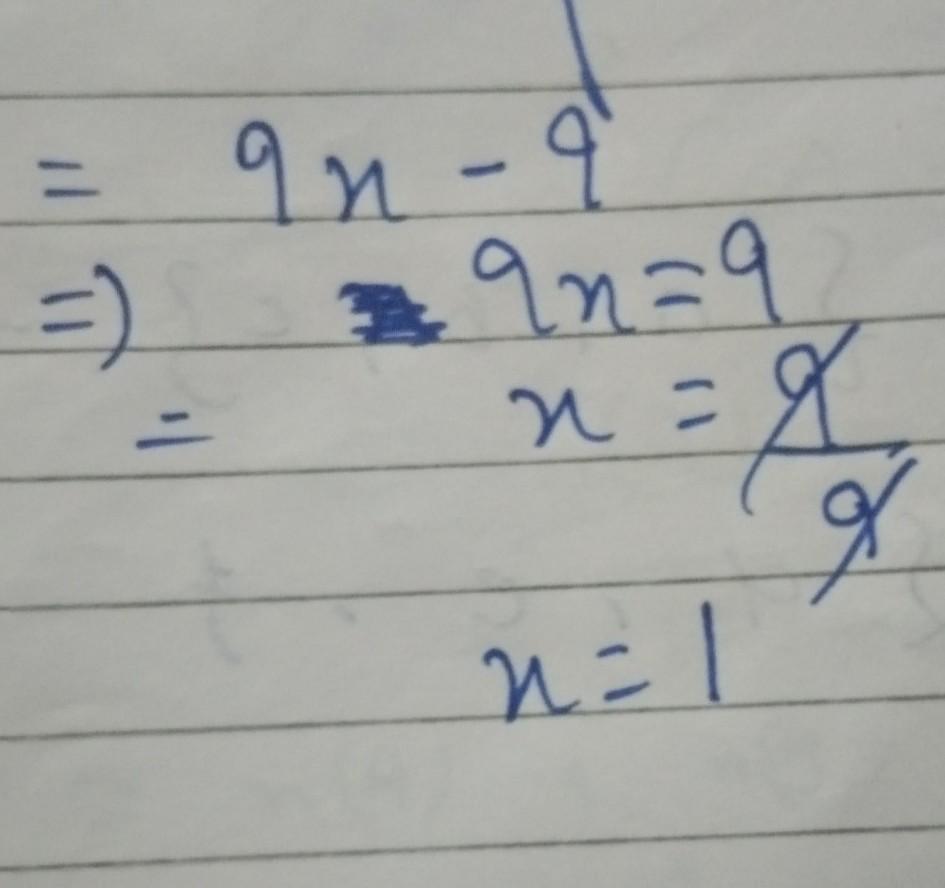 = 9x - 9
=) 9x = 9
= x = 9/9
x = 1